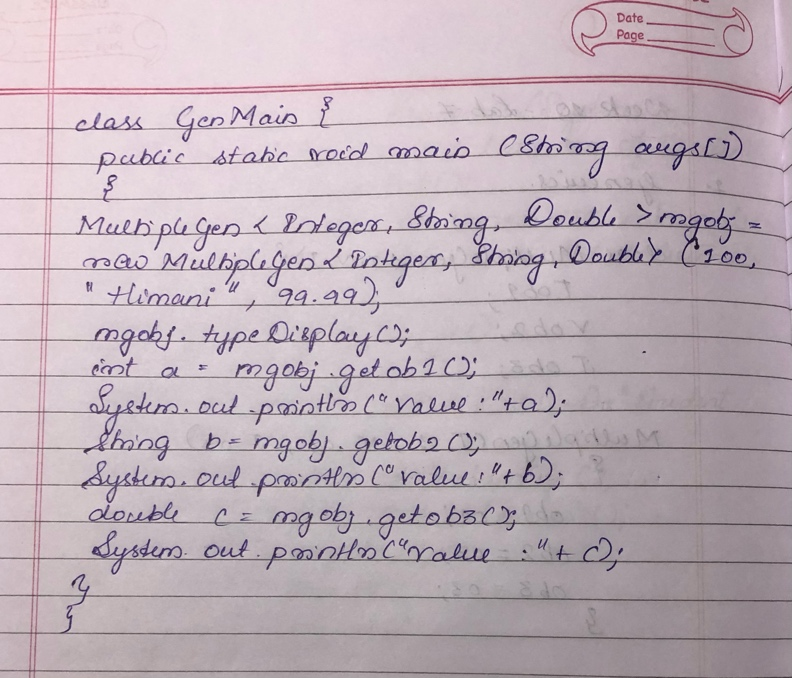 Date
Page
class GenMain {
public static void main (String args[])
{
MultipleGen < Integer, String, Double > mgobj =
new MultipleGen < Integer, String, Double> (100,
"Himani", 99.99);
mgobj. typeDisplay();
int a = mgobj.getob1();
System.out.println("Value:"+a);
String b= mgobj. getob2();
System.out.println("Value:"+b);
double c= mgobj.getob3();
System.out.println("Value :"+ c);
}
}